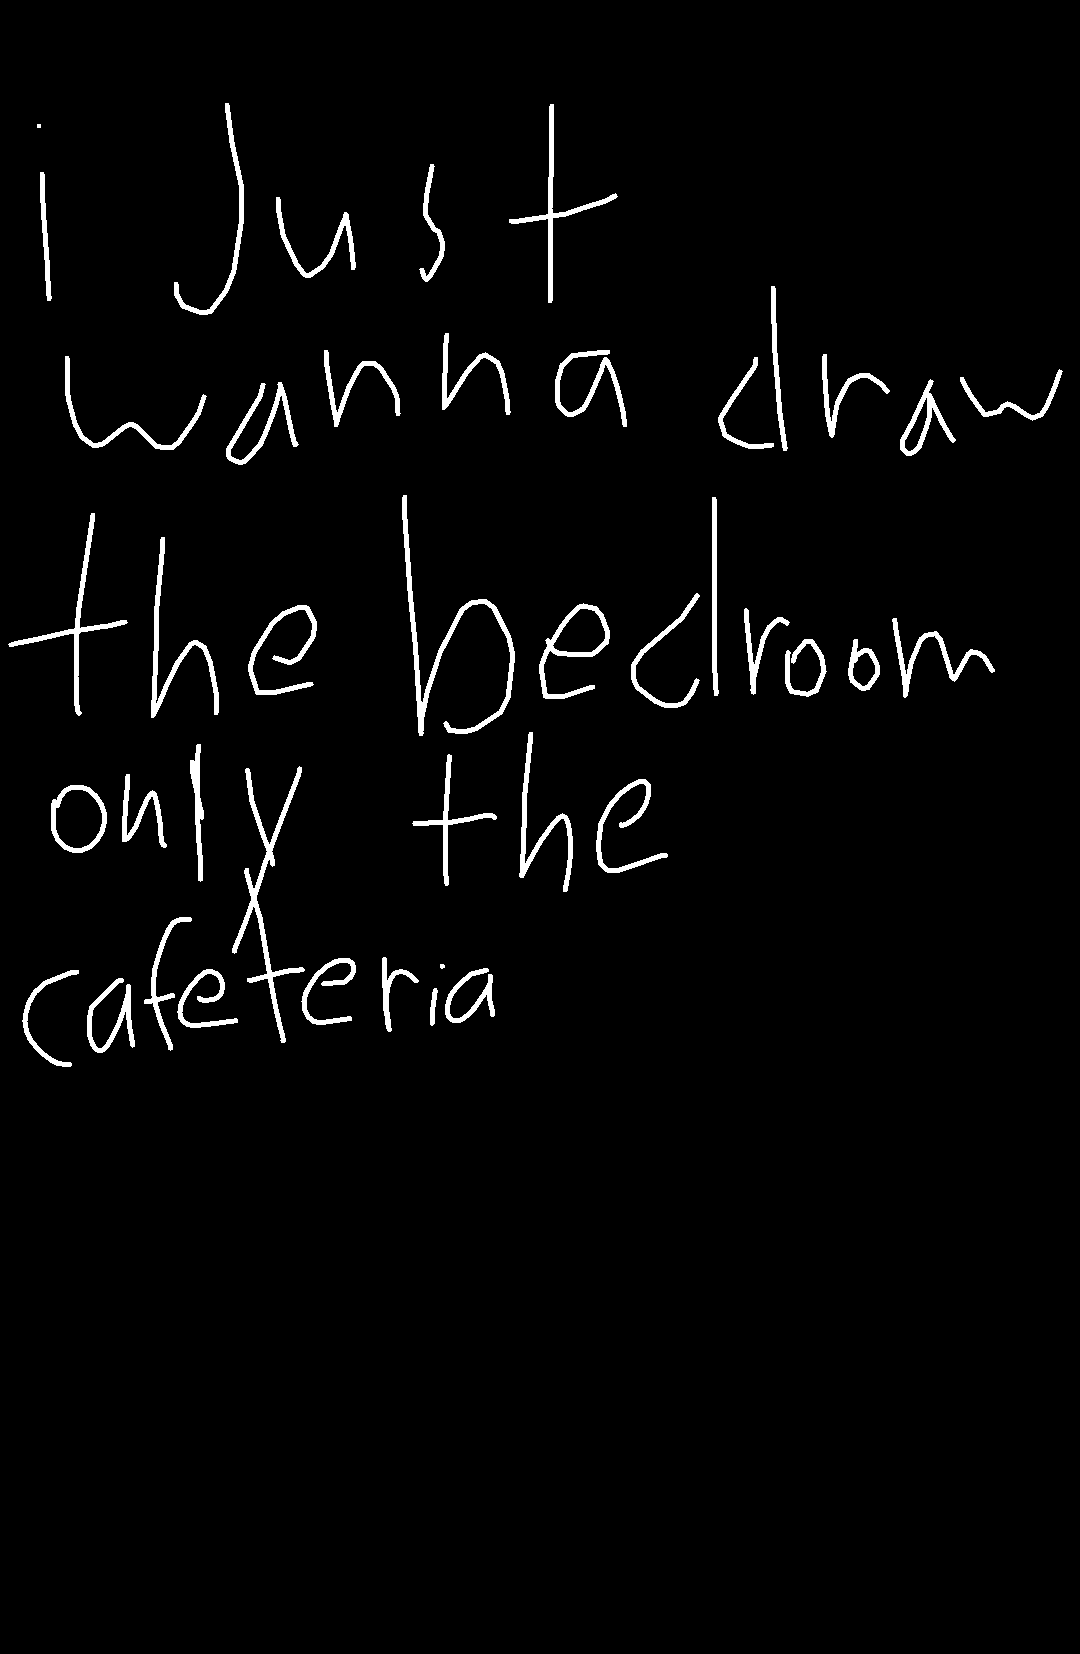 i Just
wanna draw
the bedroom
only the
cafeteria